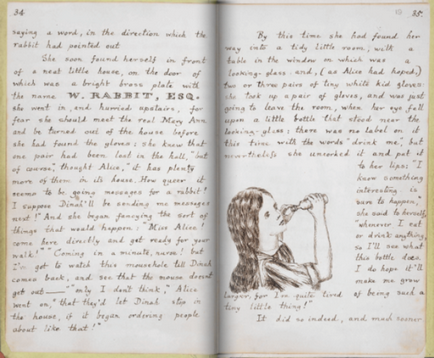 34.
saying a word, in the direction which the
rabbit had pointed out.
She soon found herself in front
of a neat little house, on the door of
which was a bright brass plate with
the name W. RABBIT, ESQ.
she went in, and hurried upstairs, for
fear she should meet the real Mary Ann
and be turned out of the house before
she had found the gloves: she knew that
one pair had been lost in the hall, "but
of course," thought Alice, "it has plenty
more of them in its house. How queer it
seems to be going messages for a rabbit!
I suppose Dinah'll be sending me messages
next!" And she began fancying the sort of
things that would happen: "Miss Alice!
come here directly and get ready for your
walk!" "Coming in a minute, nurse! but
I've got to watch this mousehole till Dinah
comes back, and see that the mouse doesn't
get out—" "only I don't think," Alice
went on, "that they'd let Dinah stop in
the house, if it began ordering people
about like that!"
35.
By this time she had found her
way into a tidy little room, with a
table in the window on which was a
looking-glass and, (as Alice had hoped,)
two or three pairs of tiny white kid gloves:
she took up a pair of gloves, and was just
going to leave the room, when her eye fell
upon a little bottle that stood near the
looking-glass: there was no label on it
this time with the words "drink me," but
nevertheless she uncorked it and put it
to her lips: "I
know something
interesting is
sure to happen,"
she said to herself,
"whenever I eat
or drink anything,
so I'll see what
this bottle does.
I do hope it'll
make me grow
larger, for I'm quite tired of being such a
tiny little thing!"
It did so indeed, and much sooner